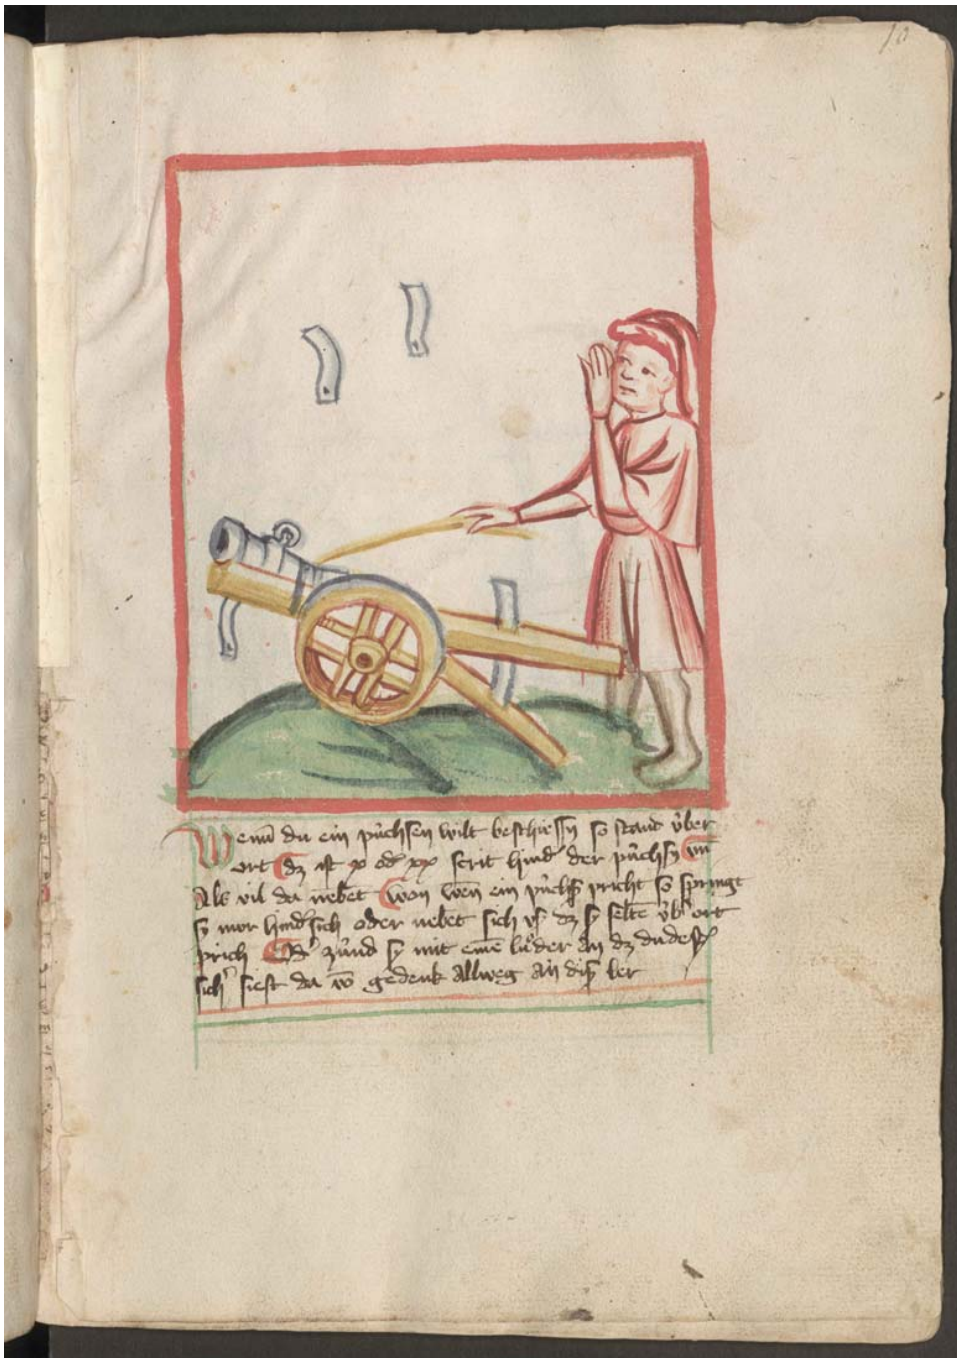 10
Wenn du ein püchsen wilt beschiessn so stand über
ort dz ist x od xx scrit hind der püchsn un
Als vil da nebet won wen ein püchs pricht so springt
sy mer hind sich oder nebet sich us dz sy selte üb ort
prich zünd sy mit eine luder an dz du dest
sich siest da vo gedenk Allweg an dis ler